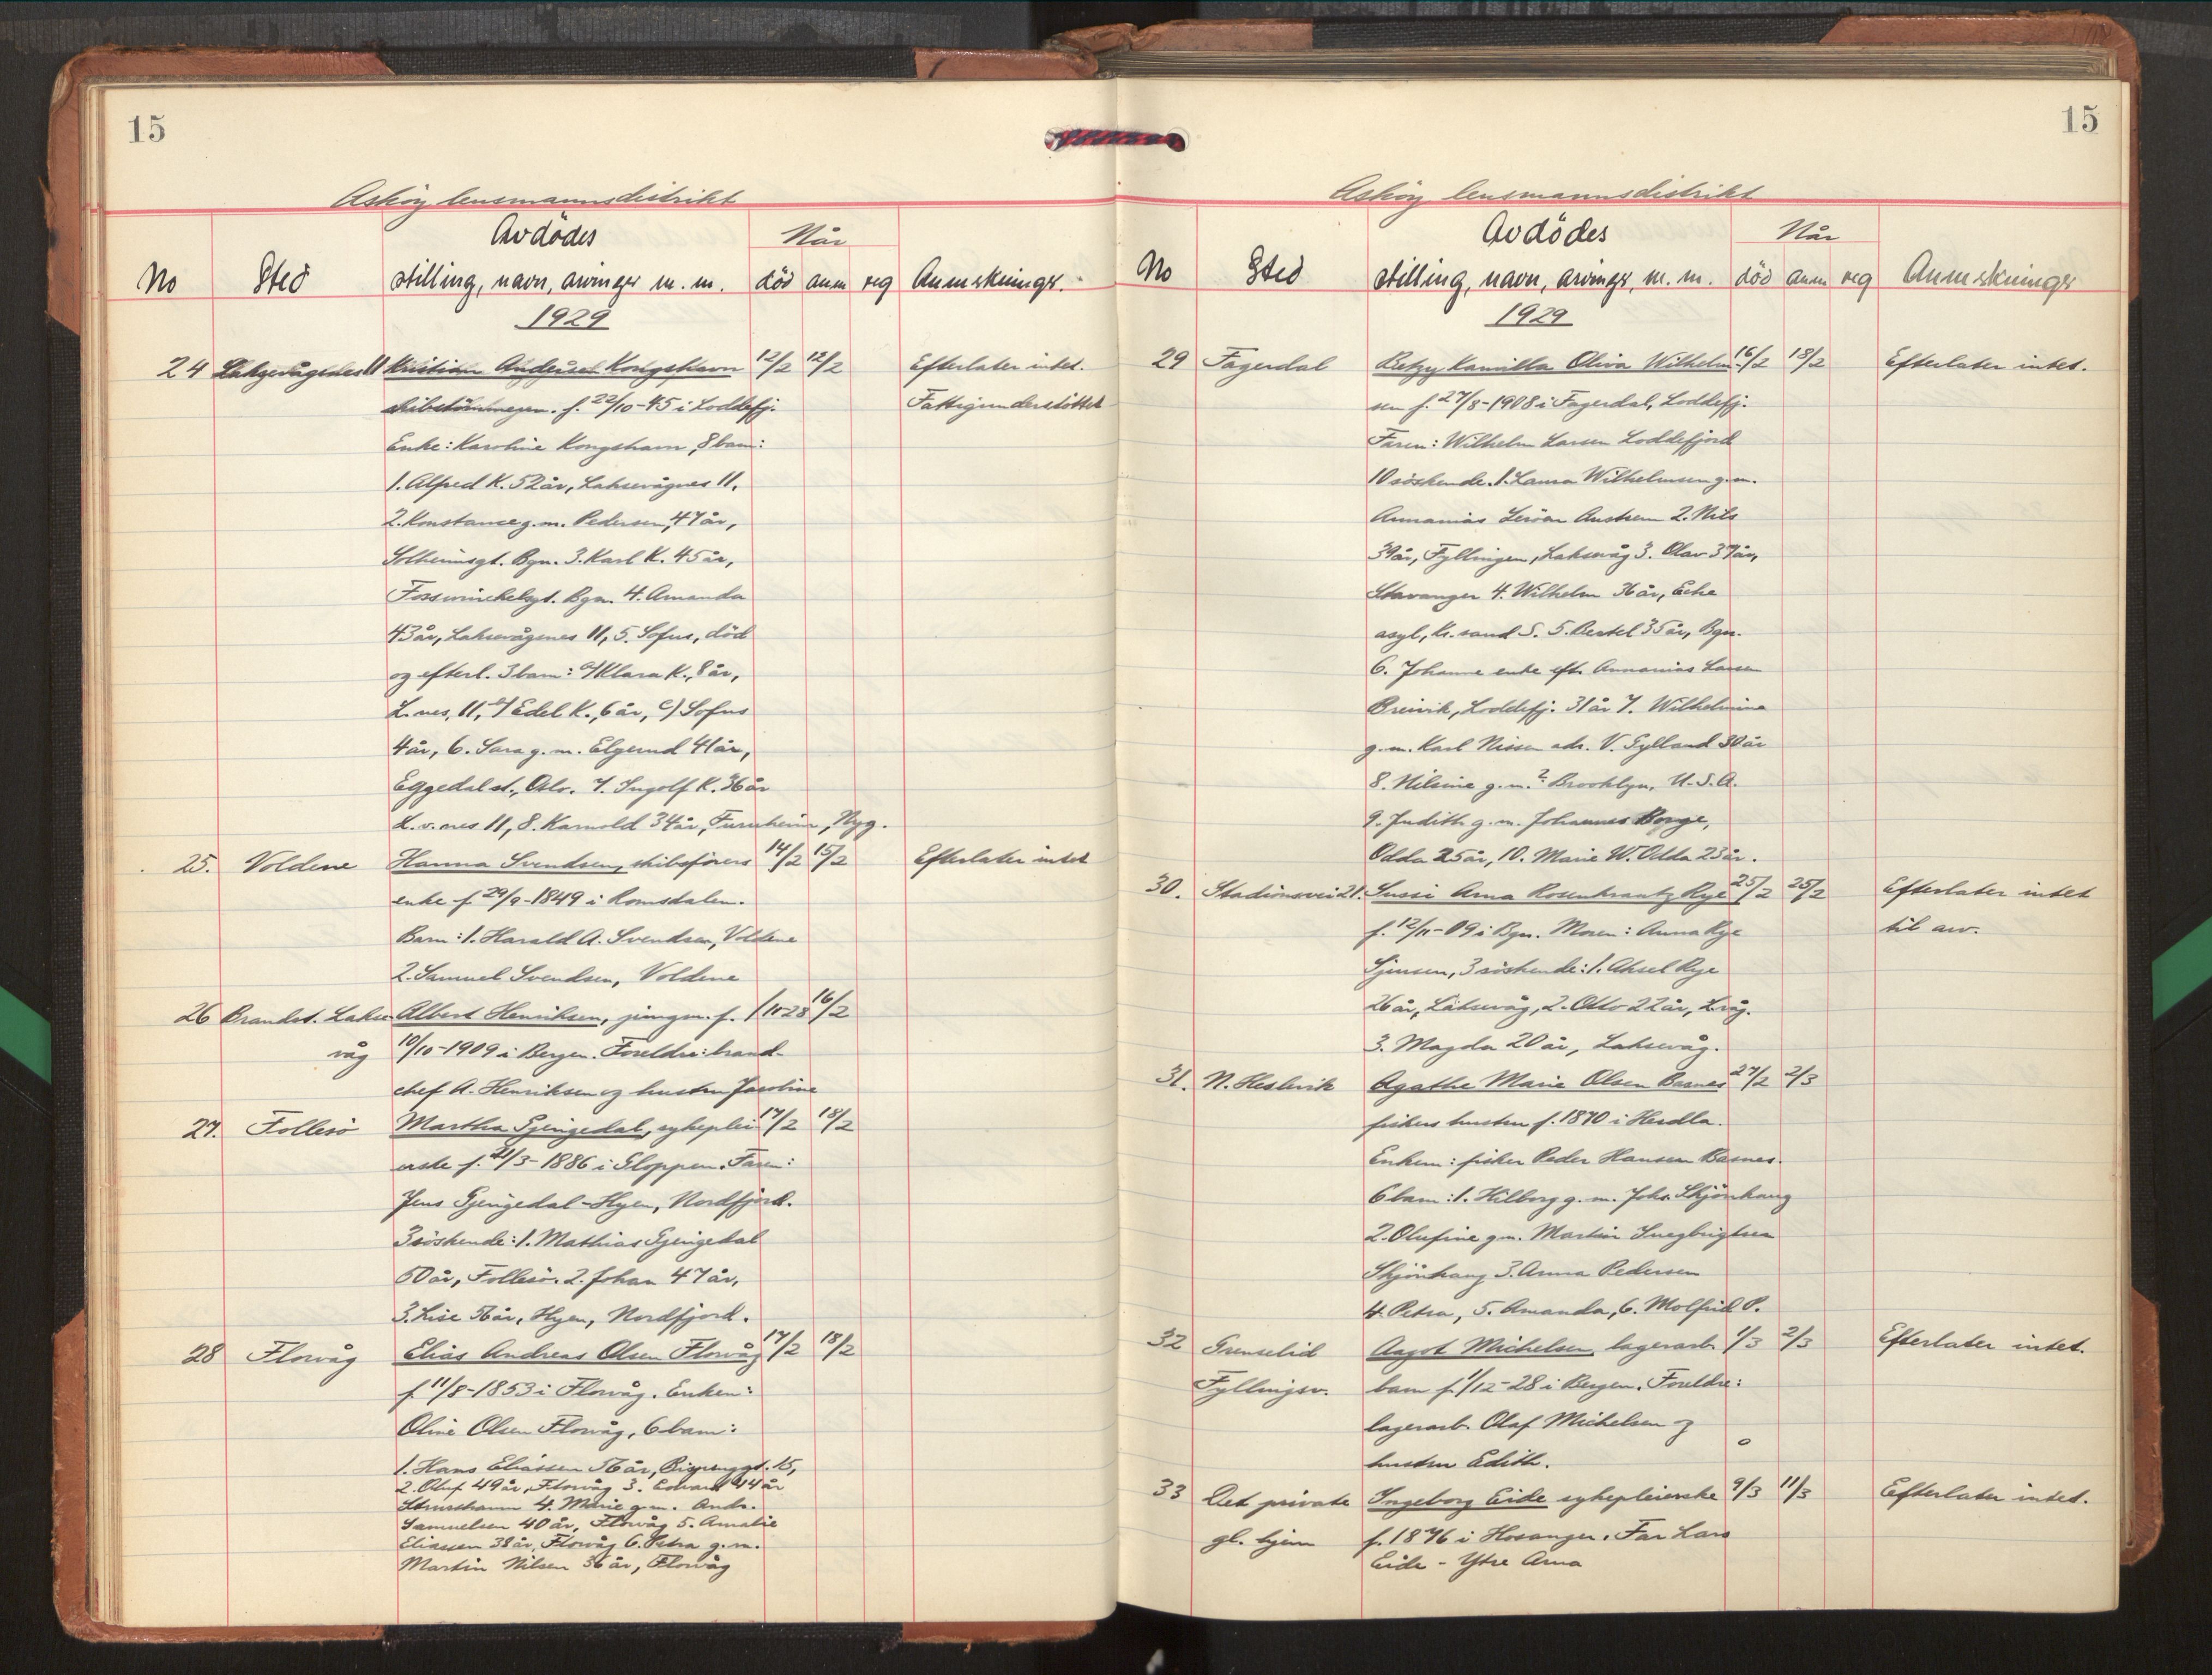 15
Askøy lensmannsdistrikt
Avdödes
Når
No Sted stilling, navn, arvinger m. m. död anm reg Anmerkninger.
1929
24 Laksevågsnes 11 Kristian Andersen Kongshavn 12/2 12/2 Efterlater intet.
f. 22/10-45 i Loddefj. Fattigunderstöttet
Enke: Karoline Kongshavn, 8 barn:
1. Alfred K. 52 år, Laksevågnes 11,
2. Konstance g.m. Pedersen, 47 år,
Solheimsgt. Bgn. 3. Karl K. 45 år,
Fosswinckelsgt. Bgn. 4. Amanda
43 år, Laksevågenes 11, 5. Sofus, död
og efterl. 3 barn: a/ Klara K., 8 år,
L. nes, 11, b/ Edel K., 6 år, c/ Sofus
4 år, 6. Sara g. m. Elgerud 41 år,
Eggedal st., Oslo. 7. Ingolf K. 36 år
L. v. nes 11, 8. Karnold 34 år, Furuheim, Nyg.
25. Voldene Hanna Svendsen, skibsförers 14/2 15/2 Efterlater intet
enke f. 29/9-1849 i Romsdalen.
Barn: 1. Harald A. Svendsen, Voldene
2. Samuel Svendsen, Voldene
26 Brandst. Lakse Albert Henriksen, jungm. f. 1/10-28 16/2
våg 10/10-1909 i Bergen. Foreldre: brand-
chef A. Henriksen og hustru Jacobine
27. Follesö Martha Gjengedal, sykeplei 17/2 18/2
erske f. 21/3-1886 i Gloppen. Faren:
Jens Gjengedal-Hyen, Nordfjord.
3 söskende: 1. Mathias Gjengedal
50 år, Follesö. 2. Johan 47 år,
3. Lise 56 år, Hyen, Nordfjord.
28 Florvåg Elias Andreas Olsen Florvåg 17/2 18/2
f. 11/8-1853 i Florvåg. Enken:
Oline Olsen Florvåg, 6 barn:
1. Hans Eliassen 56 år, 15,
2. Oluf 49 år, Florvåg 3. Edvard 44 år
Strusshamn 4. Marie g.m. Andr.
Samuelsen 40 år, Florvåg 5. Amalie
Eliassen 38 år, Florvåg 6. Petra g. m.
Martin Nilsen 36 år, Florvåg
15
Askøy lensmannsdistrikt
Avdödes
Når
No Sted stilling, navn, arvinger, m. m. död anm reg Anmerkninger
1929
29 Fagerdal Betzy Kamilla Oliva Wilhelm- 16/2 18/2 Efterlater intet.
sen f. 27/8-1908 i Fagerdal, Loddefj.
Faren: Wilhelm Larsen Loddefjord
10 söskende. 1. Laura Wilhelmsen g.m.
Annanias Leröen Austrem 2. Nils
39 år, Fyllingen, Laksevåg 3. Olav 37 år,
Stavanger 4. Wilhelm 36 år, Echo
asyl, Kr.sand S. 5. Bertel 35 år, Bgn.
6. Johanne enke eft. Annanias Larsen
Breivik, Loddefj. 31 år 7. Wilhelmine
g.m. Karl Nissen adr. V. Gylland 30 år
8. Nilsine g. m. ? Brooklyn, U.S.A.
9. Judith g. m. Johannes Borge,
Odda 25 år, 10. Marie W. Odda 23 år.
30. Stadionsvei 21. Sussi Arna Rosenkrantz Rye 25/2 25/2 Efterlater intet
f. 12/11-09 i Bgn. Moren: Anna Rye til arv.
3 söskende: 1. Aksel Rye
26 år, Laksevåg, 2. Otto 22 år, L.våg.
3. Magda 20 år, Laksevåg.
31. N. Heslevik Agathe Marie Olsen Barnes 27/2 2/3
fiskers hustru f. 1870 i Herdla.
Enkem: fisker Peder Hansen Barnes.
6 barn: 1. Hilborg g. m. Johs. Skjönhaug
2. Olufine g.m. Martin Ingebrigtsen
Skjönhaug 3. Anna Pedersen
4. Petra, 5. Amanda, 6. Molfrid P.
32 Grenselid Aagot Michelsen, lagerarb. 1/3 2/3 Efterlater intet.
Fyllingsv. barn f. 1/12-28 i Bergen. Foreldre:
lagerarb. Olaf Michelsen og
hustru Edith.
33 Det private Ingeborg Eide sykepleierske 9/3 11/3 Efterlater intet.
gl. hjem f. 1876 i Hosanger. Far Lars
Eide - Ytre Arna